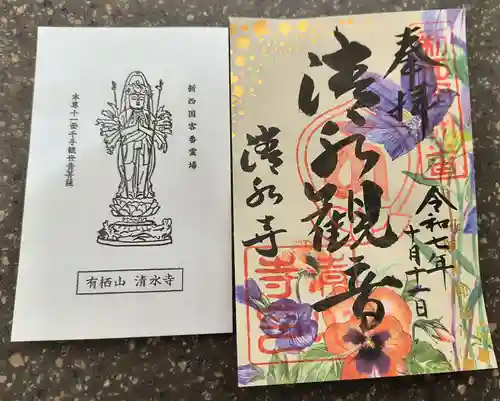 新西国客番霊場
本尊十一面千手観世音菩薩
有栖山 清水寺
奉拝
令和七年
十月十二日
清水観音
清水寺